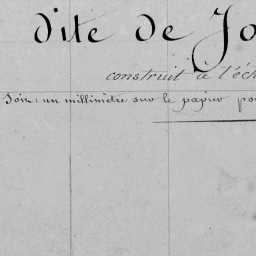 dite de Jo
construit à l'éch
Soit : un millimètre sur le papier po